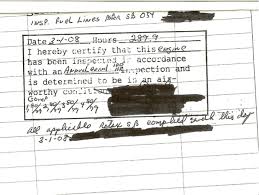 INSP. Fuel Lines per SB 054
Date 2-1-08 Hours 289.9
I hereby certify that this engine
has been inspected in accordance
with an Annual inspection and
is determined to be in an air-
worthy condition.
Comp
all applicable Rotax SB complied with this day
3-1-08